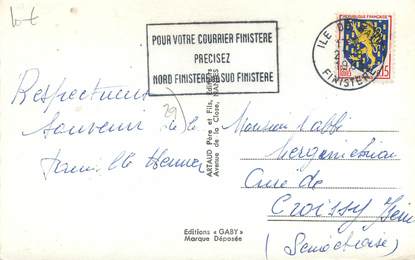 POUR VOTRE COURRIER FINISTERE
PRECISEZ
NORD FINISTERE OU SUD FINISTERE
ILE DE
FINISTERE
REPUBLIQUE FRANÇAISE
0,15
Respectueux
Souvenir de la
famille
29
ARTAUD Père et Fils, Editeurs
Avenue de la Close, NANTES
Monsieur l'abbé
Curé de
Croissy
(Seine et Oise)
Editions « GABY »
Marque Déposée